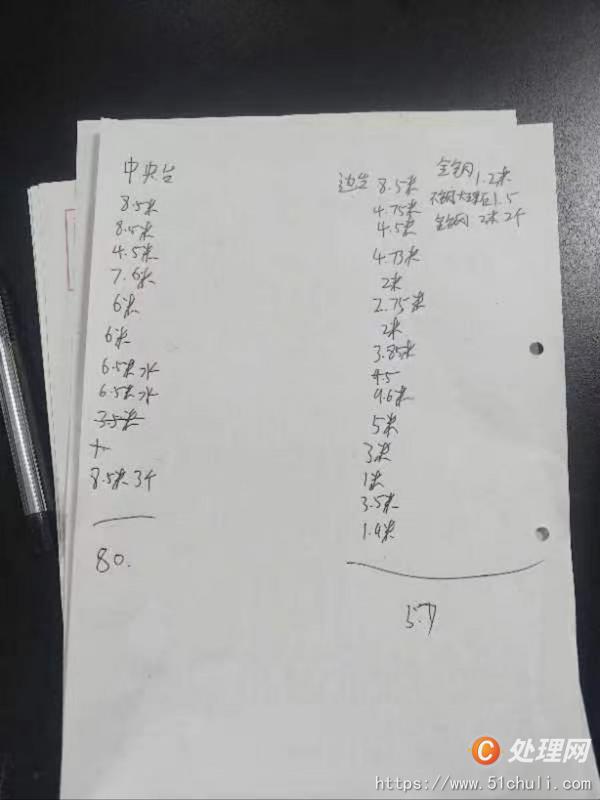 中央台
8.5米
8.5米
4.5米
7.6米
6米
6米
6.5米水
6.5米水
3.5米
8.5米3个
80.
边台 8.5米
4.75米
4.5米
4.73米
2米
2.75米
2米
3.85米
4.5
9.6米
5米
3米
1米
3.5米
1.9米
57
全钢1.2米
不钢大理台1.5
全钢 2米2个
C 处理网
https://www.51chuli.com